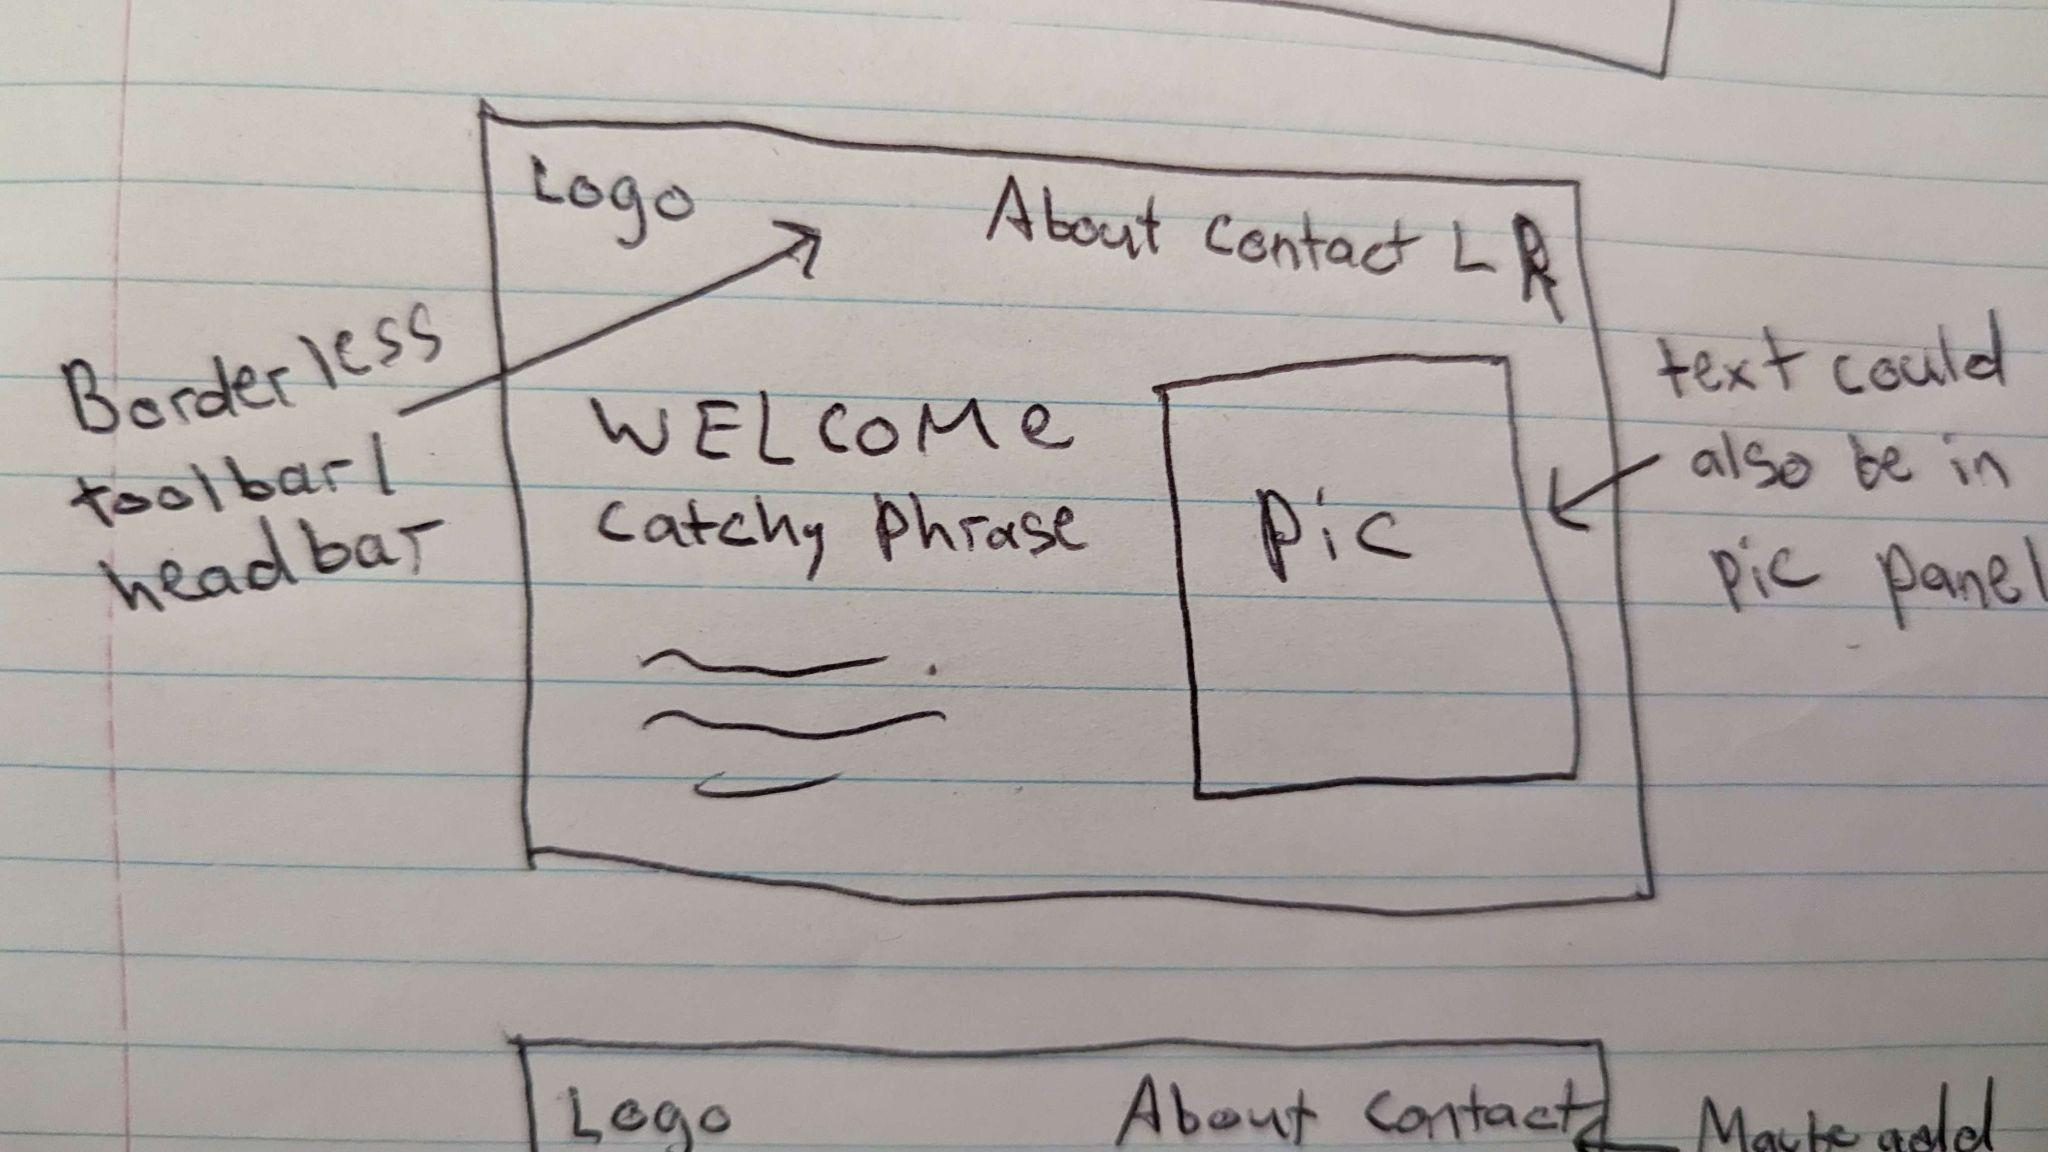 Logo
About Contact L R
Borderless
toolbar/
headbar
WELCOMe
Catchy Phrase
Pic
text could
also be in
pic panel
Logo
About Contact
Maybe add